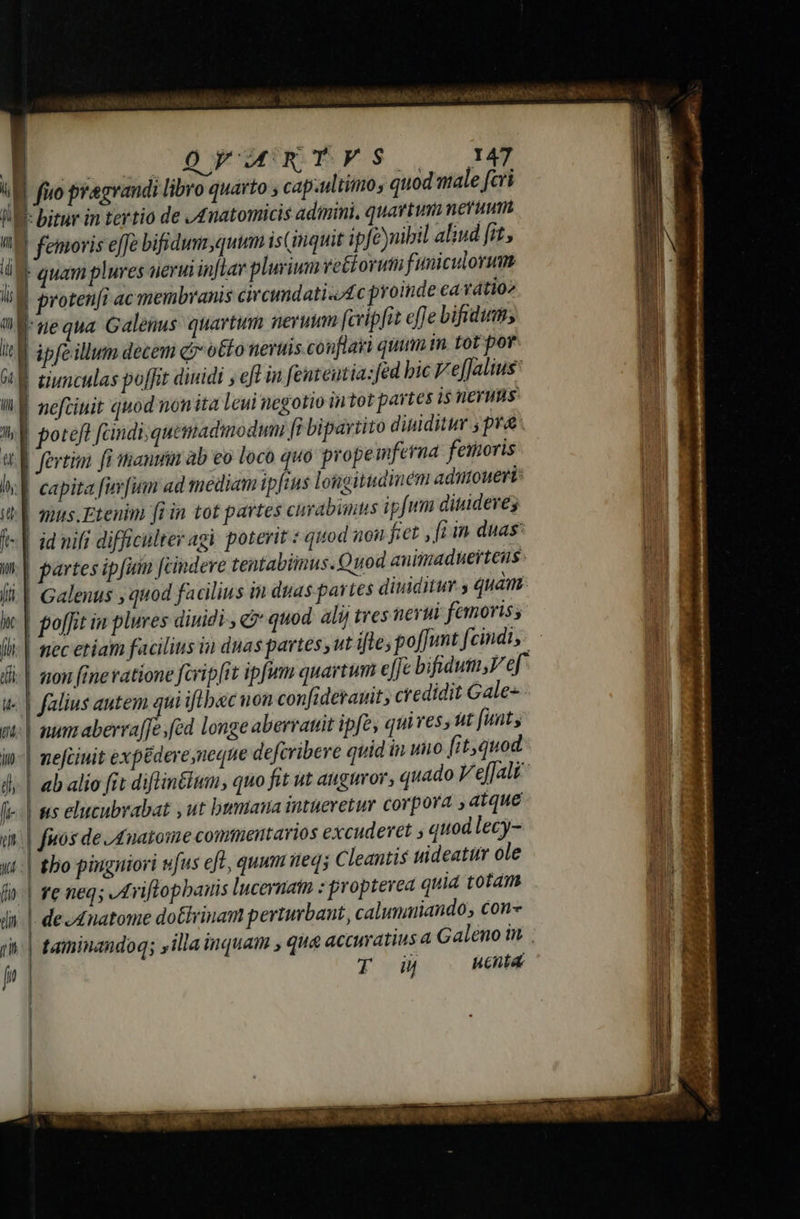 QVARTVS 147
ſuo prægrandi libro quarto, cap.ultimo, quod male ſcri
bitur in tertio de Anatomicis admini. quartum neruum
femoris eſſe bifidum, quum is (inquit ipſe) nihil aliud ſit,
quam plures nerui inſtar plurium rectorum funiculorum
protenſi ac membranis circundati. Ac proinde ea ratio,
ne qua Galenus quartum neruum ſcripſit eſſe bifidum,
ipſe illum decem & octo neruis conflari quum in tot por
tiunculas poſſit diuidi, eſt in ſententia: ſed hic Veſſalius
neſciuit quod non ita leui negotio in tot partes is neruus
poteſt ſcindi, quemadmodum ſi bipartito diuiditur, præ
ſertim ſi manum ab eo loco quo propè inferna femoris
capita ſurſum ad mediam ipſius longitudinem admoueri-
mus. Etenim ſi in tot partes curabimus ipſum diuidere,
id niſi difficulter agi poterit: quod non fiet, ſi in duas
partes ipſum ſcindere tentabimus. Quod animaduertens
Galenus, quod facilius in duas partes diuiditur, quàm
poſſit in plures diuidi, & quod alij tres nerui femoris,
nec etiam facilius in duas partes, ut iſte, poſſunt ſcindi,
non ſine ratione ſcripſit ipſum quartum eſſe bifidum, Veſ
ſalius autem qui iſthæc non conſiderauit, credidit Gale-
num aberraſſe, ſed longe aberrauit ipſe, qui res, ut ſunt,
neſciuit expēdere, neque deſcribere quid in uno ſit, quod
ab alio ſit diſtinctum, quo fit ut auguror, quādo Veſſali
us elucubrabat, ut humana intueretur corpora, atque
ſuos de Anatome commentarios excuderet, quod lecy-
tho pinguiori uſus eſt, quum neq; Cleantis uideatur ole
re neq; Ariſtophanis lucernam: propterea quia totam
de Anatome doctrinam perturbant, calumniando, con-
taminandoq; illa inquam, quæ accuratius a Galeno in
T iij uenta